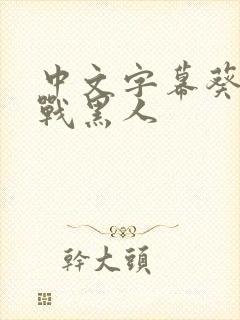 中文字幕葵
戰黑人
幹大頭